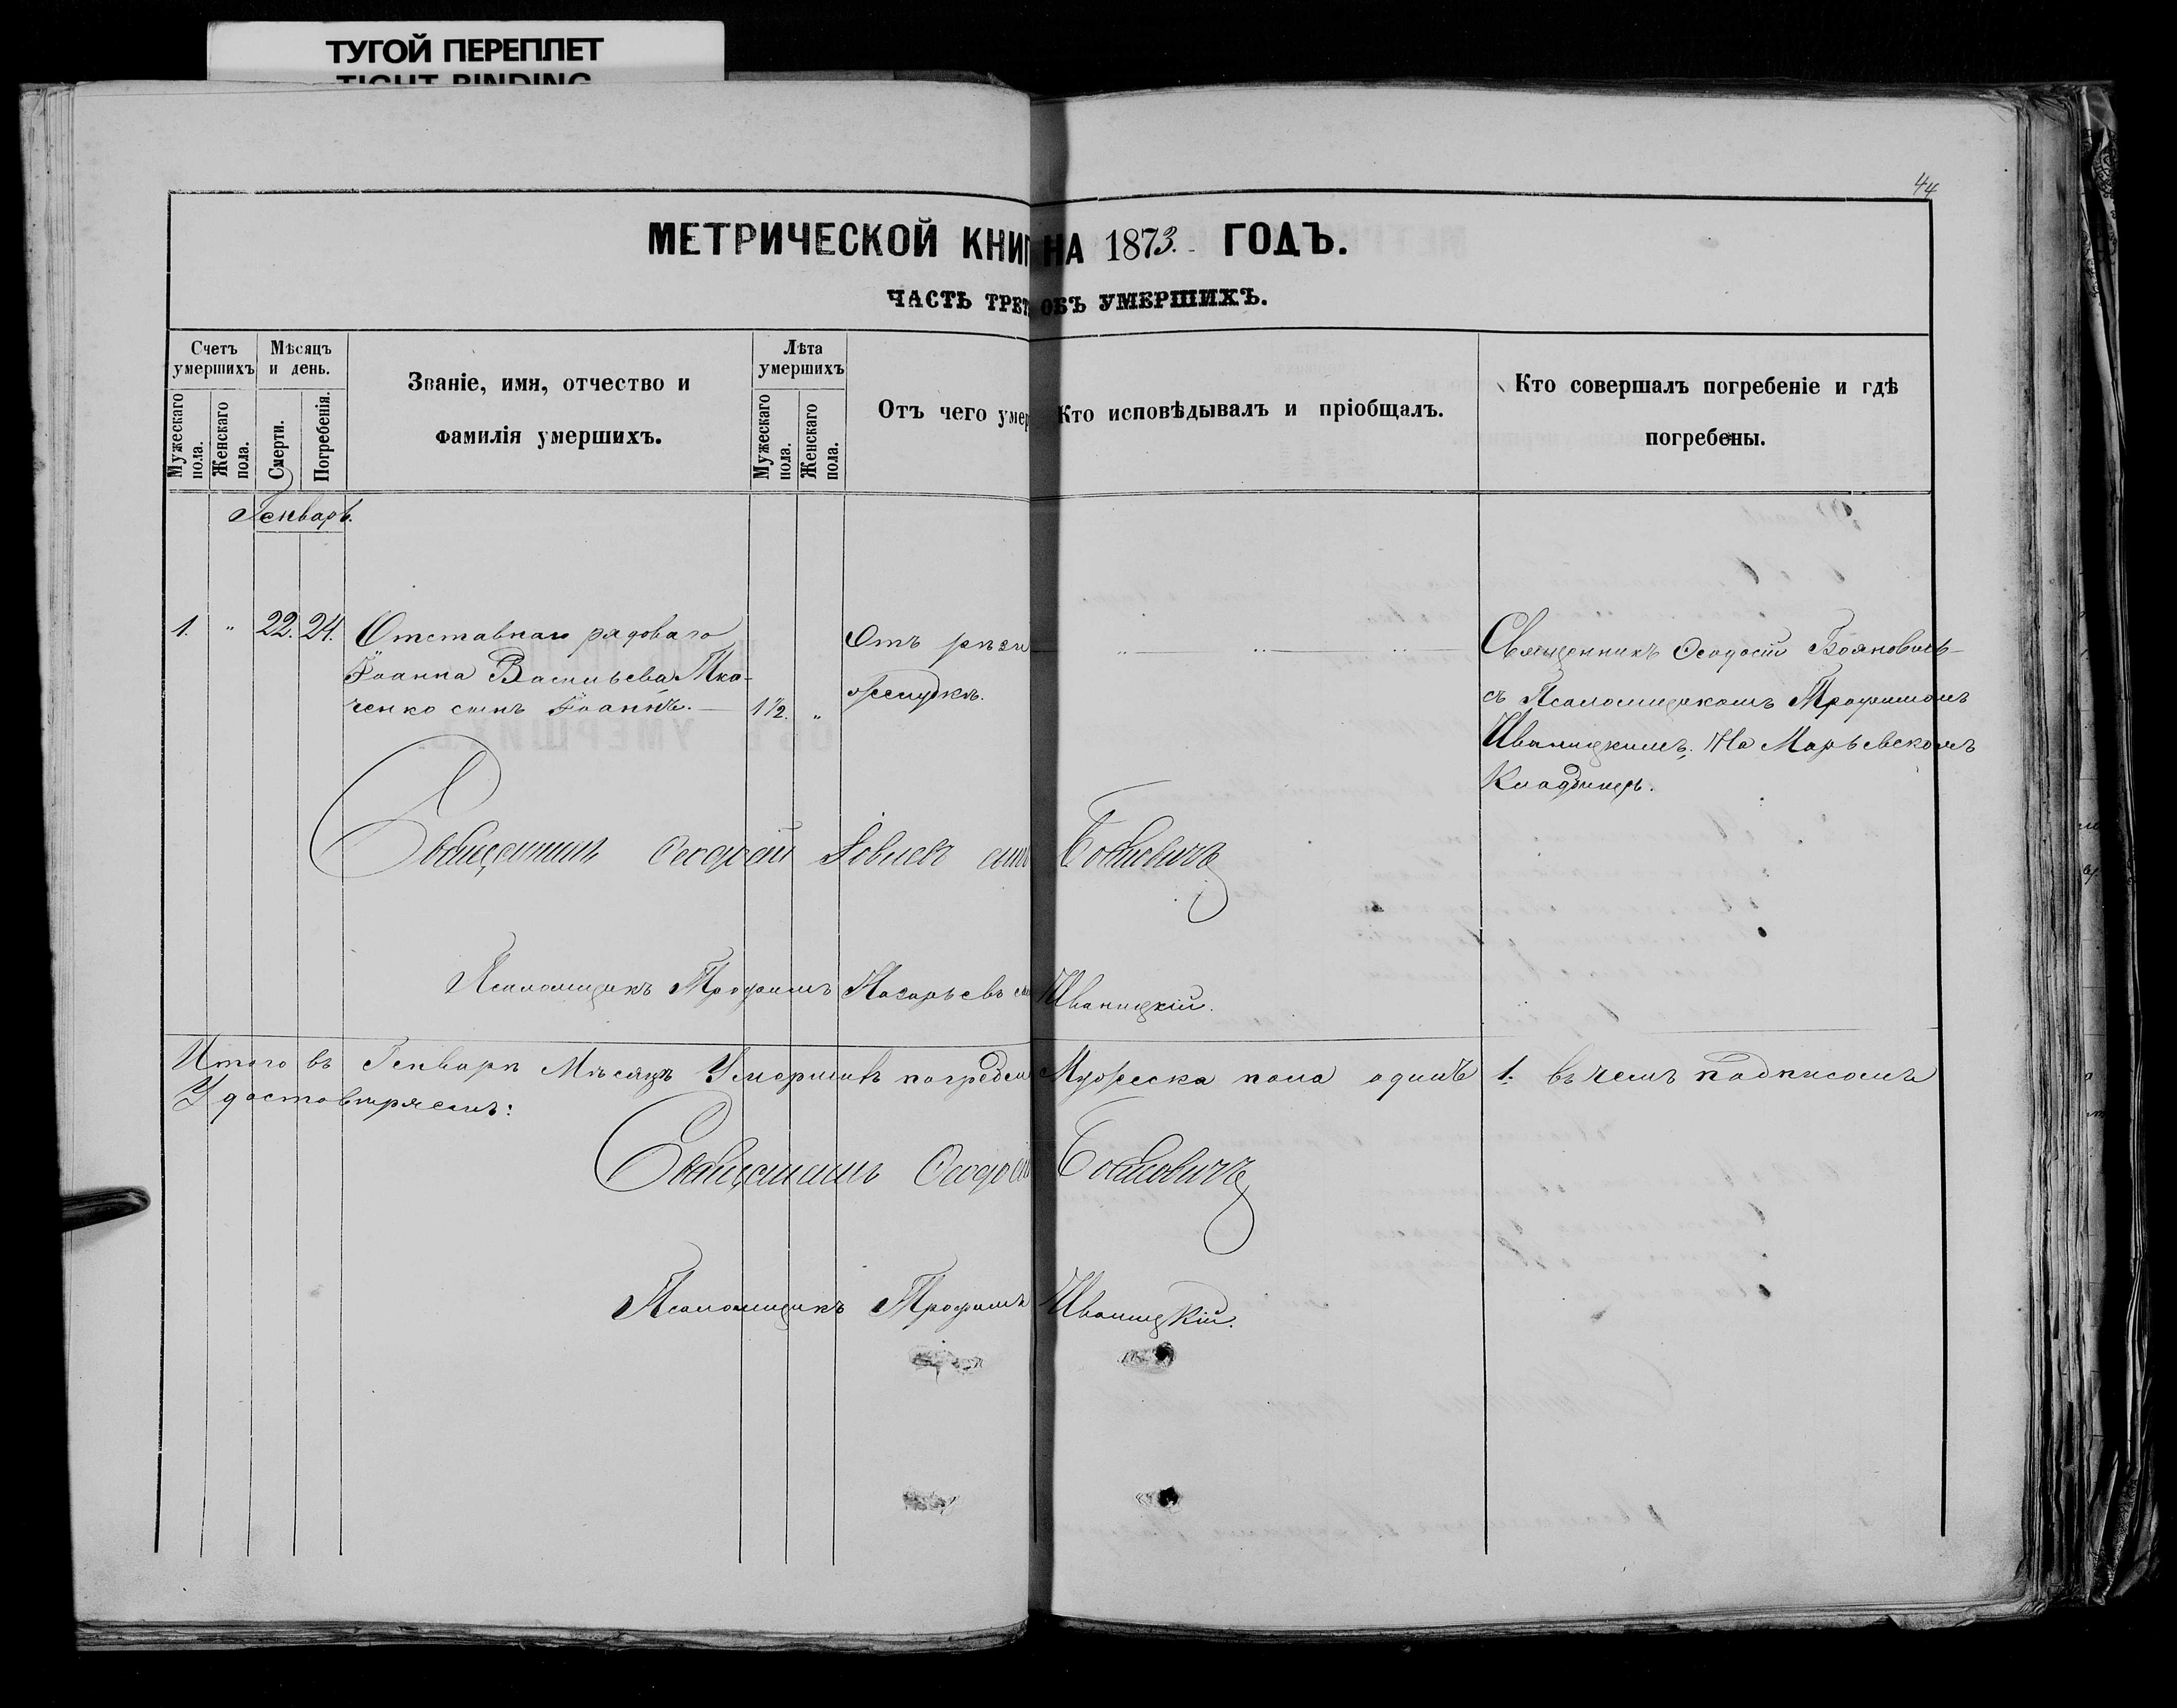 ТУГОЙ ПЕРЕПЛЕТ
TIGHT BINDING
44
МЕТРИЧЕСКОЙ КНИГ НА 1873. ГОДЪ.
ЧАСТЬ ТРЕТ ОБЪ УМЕРШИХЪ.
Счетъ умершихъ
Мужескаго пола.
Женскаго пола.
Мѣсяцъ и день.
Смерти.
Погребенія.
Званіе, имя, отчество и
фамилія умершихъ.
Лѣта умершихъ
Мужескаго пола.
Женскаго пола.
Отъ чего умер
Кто исповѣдывалъ и пріобщалъ.
Кто совершалъ погребеніе и гдѣ
погребены.
Генварь.
1. " 22. 24. Отставнаго рядоваго
Іоанна Васильева Тка-
ченко сынъ Іоаннъ. — 1½. "
Отъ рѣзи
желудкѣ.
Священникъ Ѳеодосій Бояновичъ
съ Псаломщикомъ Трофимомъ
Иваницкимъ, На Марьевскомъ
Кладбищѣ.
Священникъ Ѳеодосій Іовлевъ сынъ Бояновичъ
Псаломщикъ Трофимъ Назарьевъ сы Иваницкій.
Итого въ Генварѣ Мѣсяцѣ Умершихъ погребен Мужеска пола одинъ 1. въ чемъ подписомъ
Удостовѣряемъ:
Священникъ Ѳеодосій Бояновичъ
Псаломщикъ Трофимъ Иваницкій.